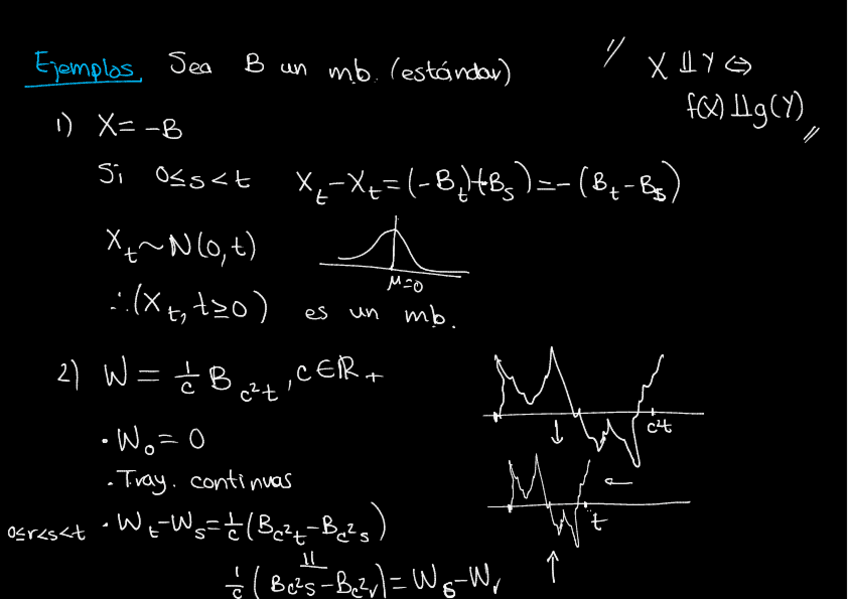 Ejemplos Sea B un m.b. (estándar)
// X ⫫ Y ⇔
f(X) ⫫ g(Y) //
1) X = -B
Si 0≤s<t X_t - X_t = (-B_t)+(B_s) = -(B_t - B_s)
X_t ~ N(0,t)
μ=0
∴ (X_t, t≥0) es un m.b.
2) W = 1/c B_{c²t}, c ∈ ℝ_+
· W_0 = 0
· Tray. continuas
0≤r<s<t · W_t - W_s = 1/c (B_{c²t} - B_{c²s})
⫫
1/c (B_{c²s} - B_{c²r}) = W_s - W_r
c²t
t